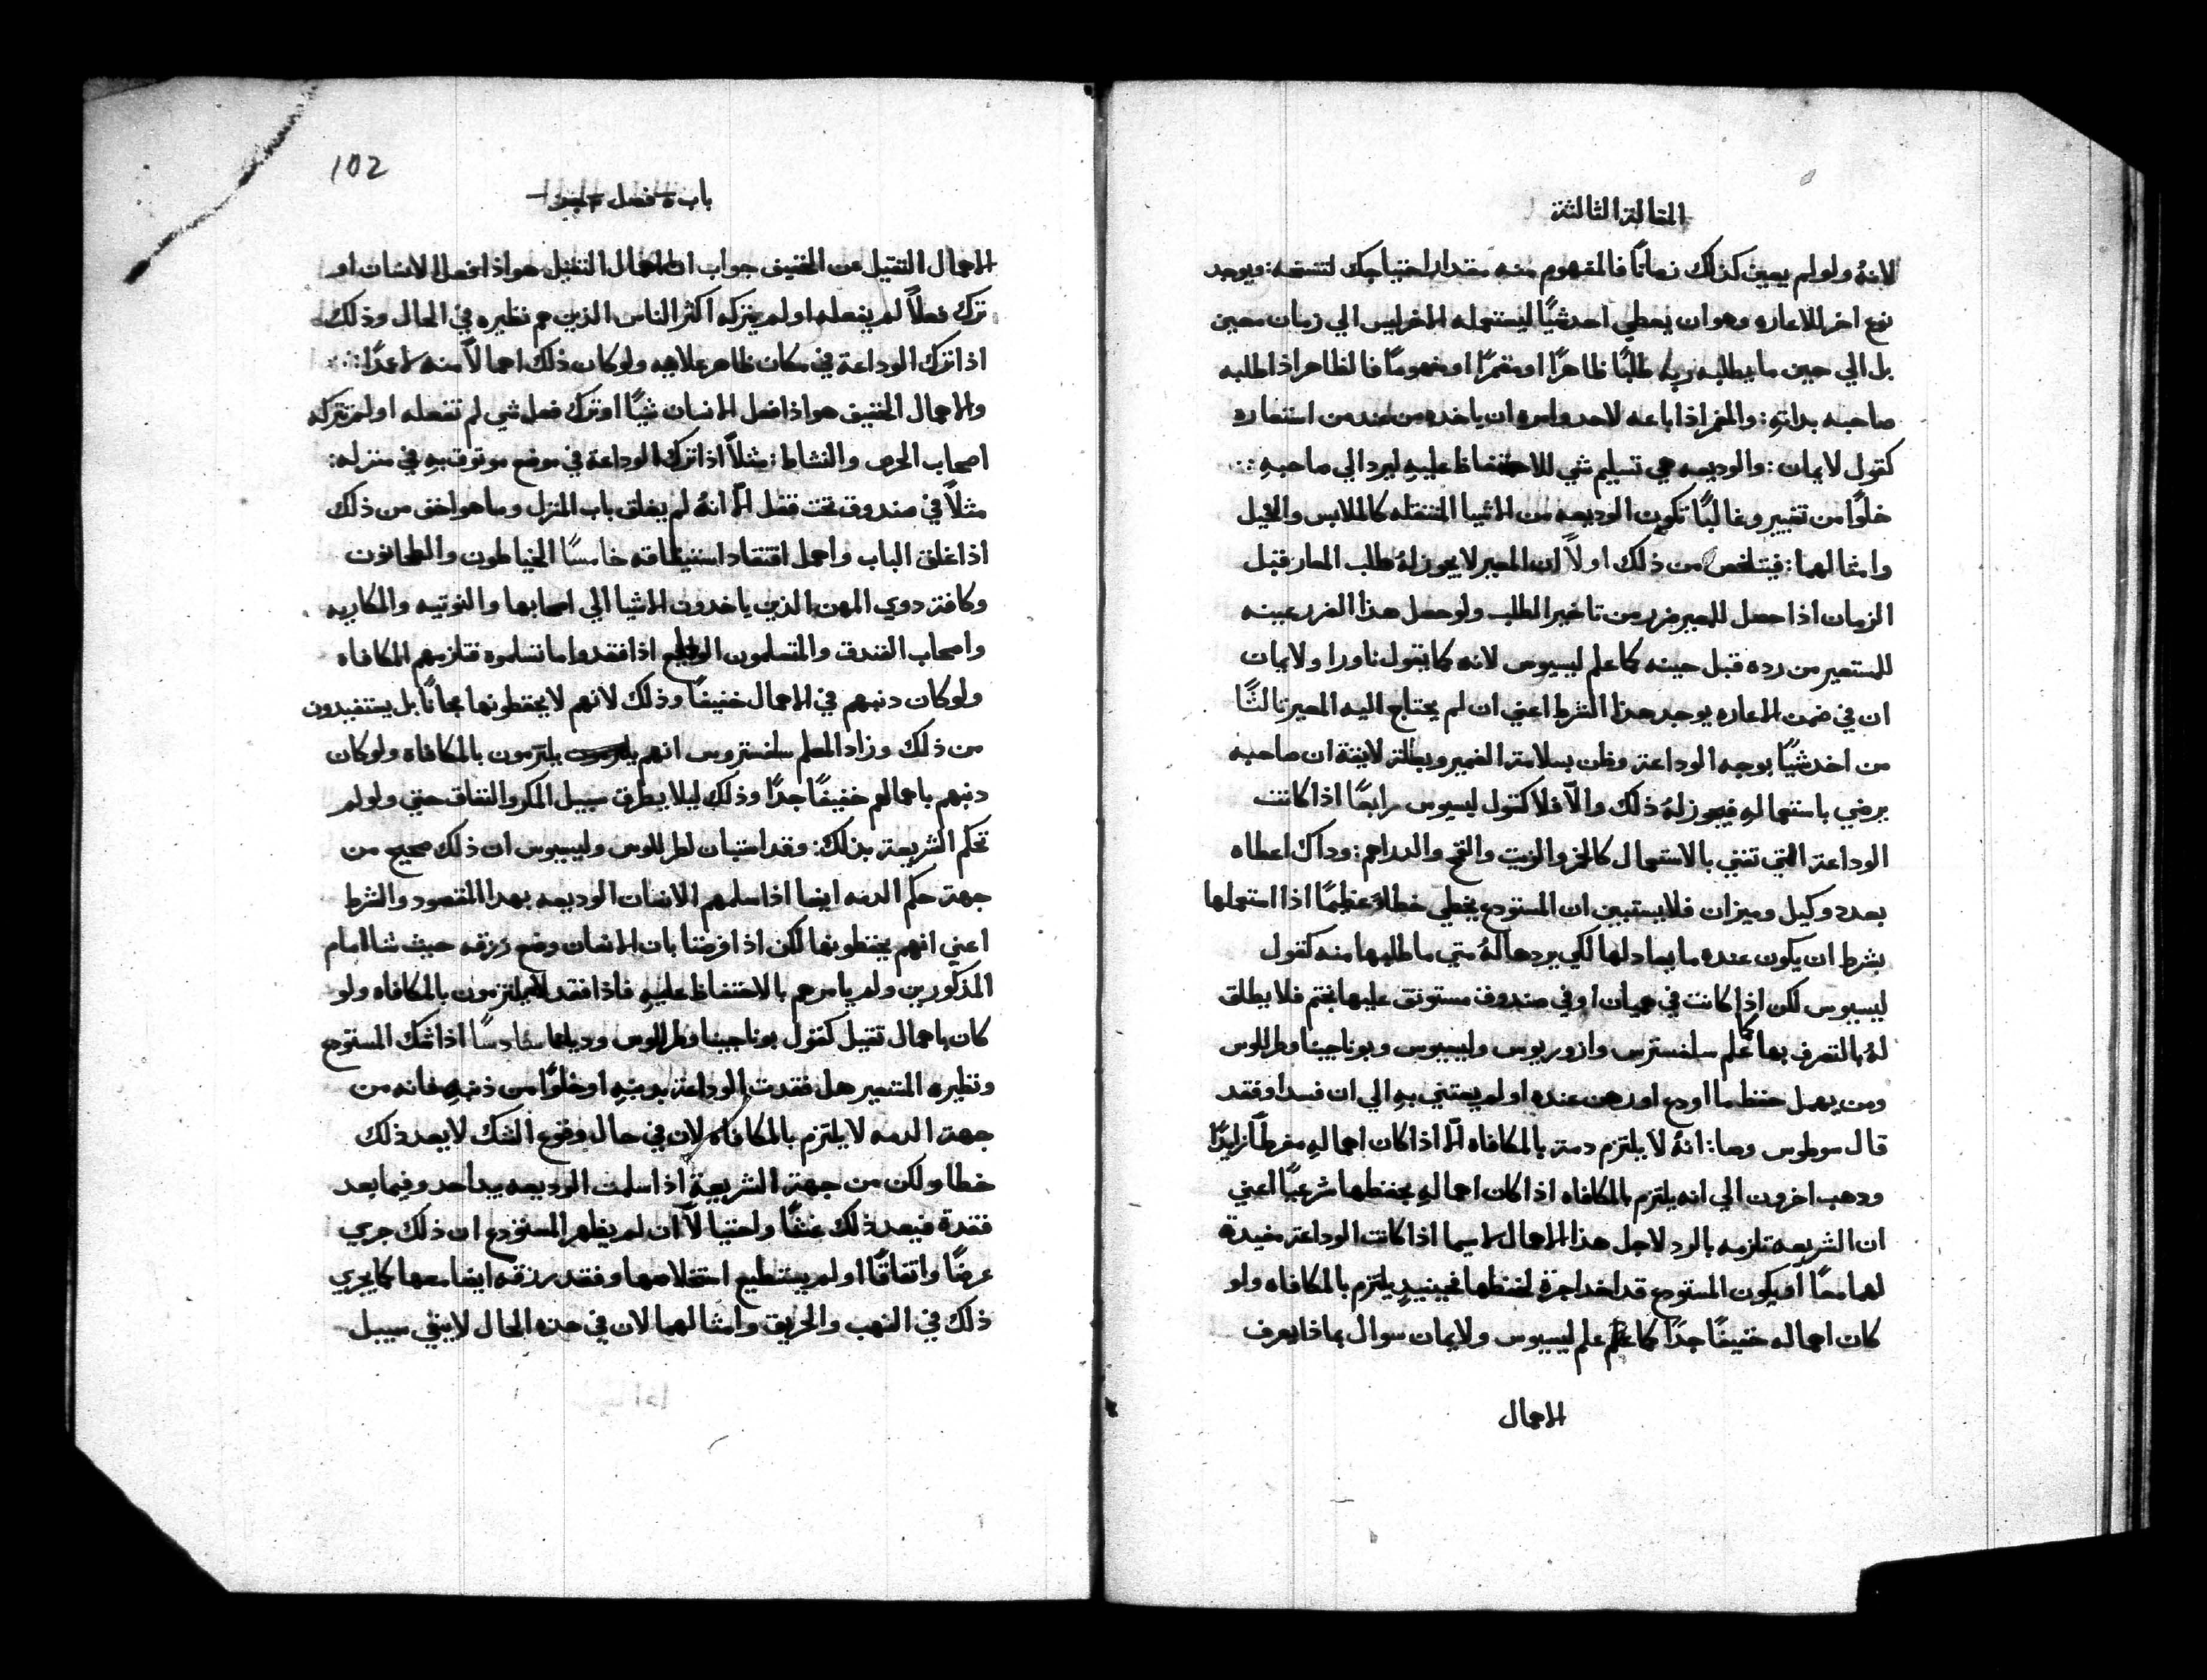 المقالة الثالثة
لانهُ ولو لم يعين كذلك زماناً فالمفهوم منه مقدار احتياجك لتنسخه: ويوجد
نوع اخر للاعاره وهو ان يعطي احد شيًا ليستعمله الاخر ليس الي زمان معين
بل الي حين ما يطلبه ربه طلبًا ظاهرًا او مضمرًا او مفهومًا فالظاهر اذا طلبه
صاحبه بداته: والمضمر اذا باعه لاحد وامره ان ياخده من عند من استعاره
كقول لايمان: والوديعه هي تسليم شي للاحتفاظ عليهِ ليرد الي صاحبهِ :·
خلوًا من تغيير وغالبًا تكون الوديعه من الاشيا المنتقله كالملابس والخيل
وامثالهما: فيتلخص من ذلك اولاً ان المعير لا يجوز لهُ طلب المعار قبل
الزمان اذا حصل للمعير ضرر من تاخير الطلب ولو حصل هذا الضرر عينه
للمستعير من رده قبل حينه كما علم ليسيوس لانه كما يقول ناورا ولايمان
ان في ضمن الاعاره يوجد هذا الشرط اعني ان لم يحتاج اليه المعير ثالثًا
من اخد شيًا بوجه الوداعة وظن بسلامة الضمير وبطلة لايقة ان صاحبه
يرضي باستعمالهِ فيجوز لهُ ذلك والاّ فلا كقول ليسيوس رابعًا اذا كانت
الوداعة التي تفني بالاستعمال كالخمر والزيت والقمح والدراهم: وداك اعطاه
بعدد وكيل وميزان فلا يستبين ان المستودع يخطي خطاءً عظيمًا اذا استعملها
بشرط ان يكون عنده ما يعادلها لكي يردها لهُ متي ما طلبها منه كقول
ليسيوس لكن اذا كانت في هميان او في صندوق مستوثق عليها بختم فلا يطلق
لهُ بالتصرف بها كما علم سلفسترس وازوريوس وليسيوس وبوناجينا وطرللوس
ومن يهمل حفظ ما اودع او رهن عنده او لم يعتني بهِ الي ان فسد او فقد
قال سوطوس وصا: انهُ لا يلتزم دمة بالمكافاه الاّ اذا كان اهمالهِ مفرطاً زايدًا
ودهب اخرون الي انه يلتزم بالمكافاه اذا كان اهمالهِ بحفظها شرعيًا اعني
ان الشريعه تلزمه بالرد لاجل هذا الاهمال لاسيما اذا كانت الوداعة مفيدة
لهما معًا او يكون المستودع قد اخد اجرة لحفظها فحينيدٍ يلتزم بالمكافاه ولو
كان اهماله خفيفًا جدًا كما علم ليسيوس ولايمان سوال بماذا يعرف
الاهمال
102
باب فصل
الاهمال الثقيل من الخفيف جواب ان الاهمال الثقيل هو اذا فعل الانسان او
ترك فعلاً لم يفعله او لم يتركه اكثر الناس الذين هم نظيره في الحال وذلك
اذا ترك الوداعة في مكان ظاهر علاجه ولو كان ذلك اهمالاً منه لا عدًا :·
والاهمال الخفيف هو اذا فعل الانسان شيًا او ترك فعل شي لم تفعله او لم تتركه
اصحاب الحرص والنشاط: مثلاً اذا ترك الوداعة في موضع موثوق بهِ في منزله:
مثلاً في صندوق تحت قفل الاّ انهُ لم يغلق باب المنزل وما هو اخف من ذلك
اذا غلق الباب واهمل افتقاد استيثاقه خامسًا الخياطون والطحانون
وكافة دوي المهن الذين ياخدون الاشيا الي اصحابها والنوتيه والمكاريه
واصحاب الفندق والمتسلمون اذا فقدوا ما تسلموه فتلزمهم المكافاه
ولو كان دنبهم في الاهمال خفيفًا وذلك لانهم لا يحفظونها مجانًا بل يستفيدون
من ذلك وزاد المعلم سلفستروس انهم يلتزمون بالمكافاه ولو كان
دنبهم باهمالهم خفيفًا جدًا وذلك ليلا يطرق سبيل المكر والنفاق حتي ولو لم
تحكم الشريعة بذلك: وقد استبان لطرللوس وليسيوس ان ذلك صحيح من
جهة حكم الدمه ايضا اذا سلمهم الانسان الوديعه بهدا المقصود والشرط
اعني انهم يحفظونها لكن اذا فرضنا بان الانسان وضع رزقه حيث شا امام
المذكورين ولم يامرهم بالاحتفاظ عليهِ فاذا فقد لا يلتزمون بالمكافاه ولو
كان باهمال ثقيل كقول بوناجينا وطرللوس وديانا سادسًا اذا شك المستودع
ونظيره المتعير هل فقدت الوداعة بدنبهِ او خلوًا من ذنبهِ فانه من
جهة الدمه لا يلتزم بالمكافاه لان في حال وقوع الشك لا يعد ذلك
خطا ولكن من جهة الشريعة اذا سلمت الوديعه بيد احد وفيما بعد
فقدة فيعد ذلك غشًا واحتيالاً ان لم يظهر المستودع ان ذلك جري
عرضًا واتفاقًا او لم يستطيع استخلاصها وفقد رزقه ايضا معها كما يجري
ذلك في النهب والحريق وامثالهما لان في هذه الحال لا يبقي سبيل